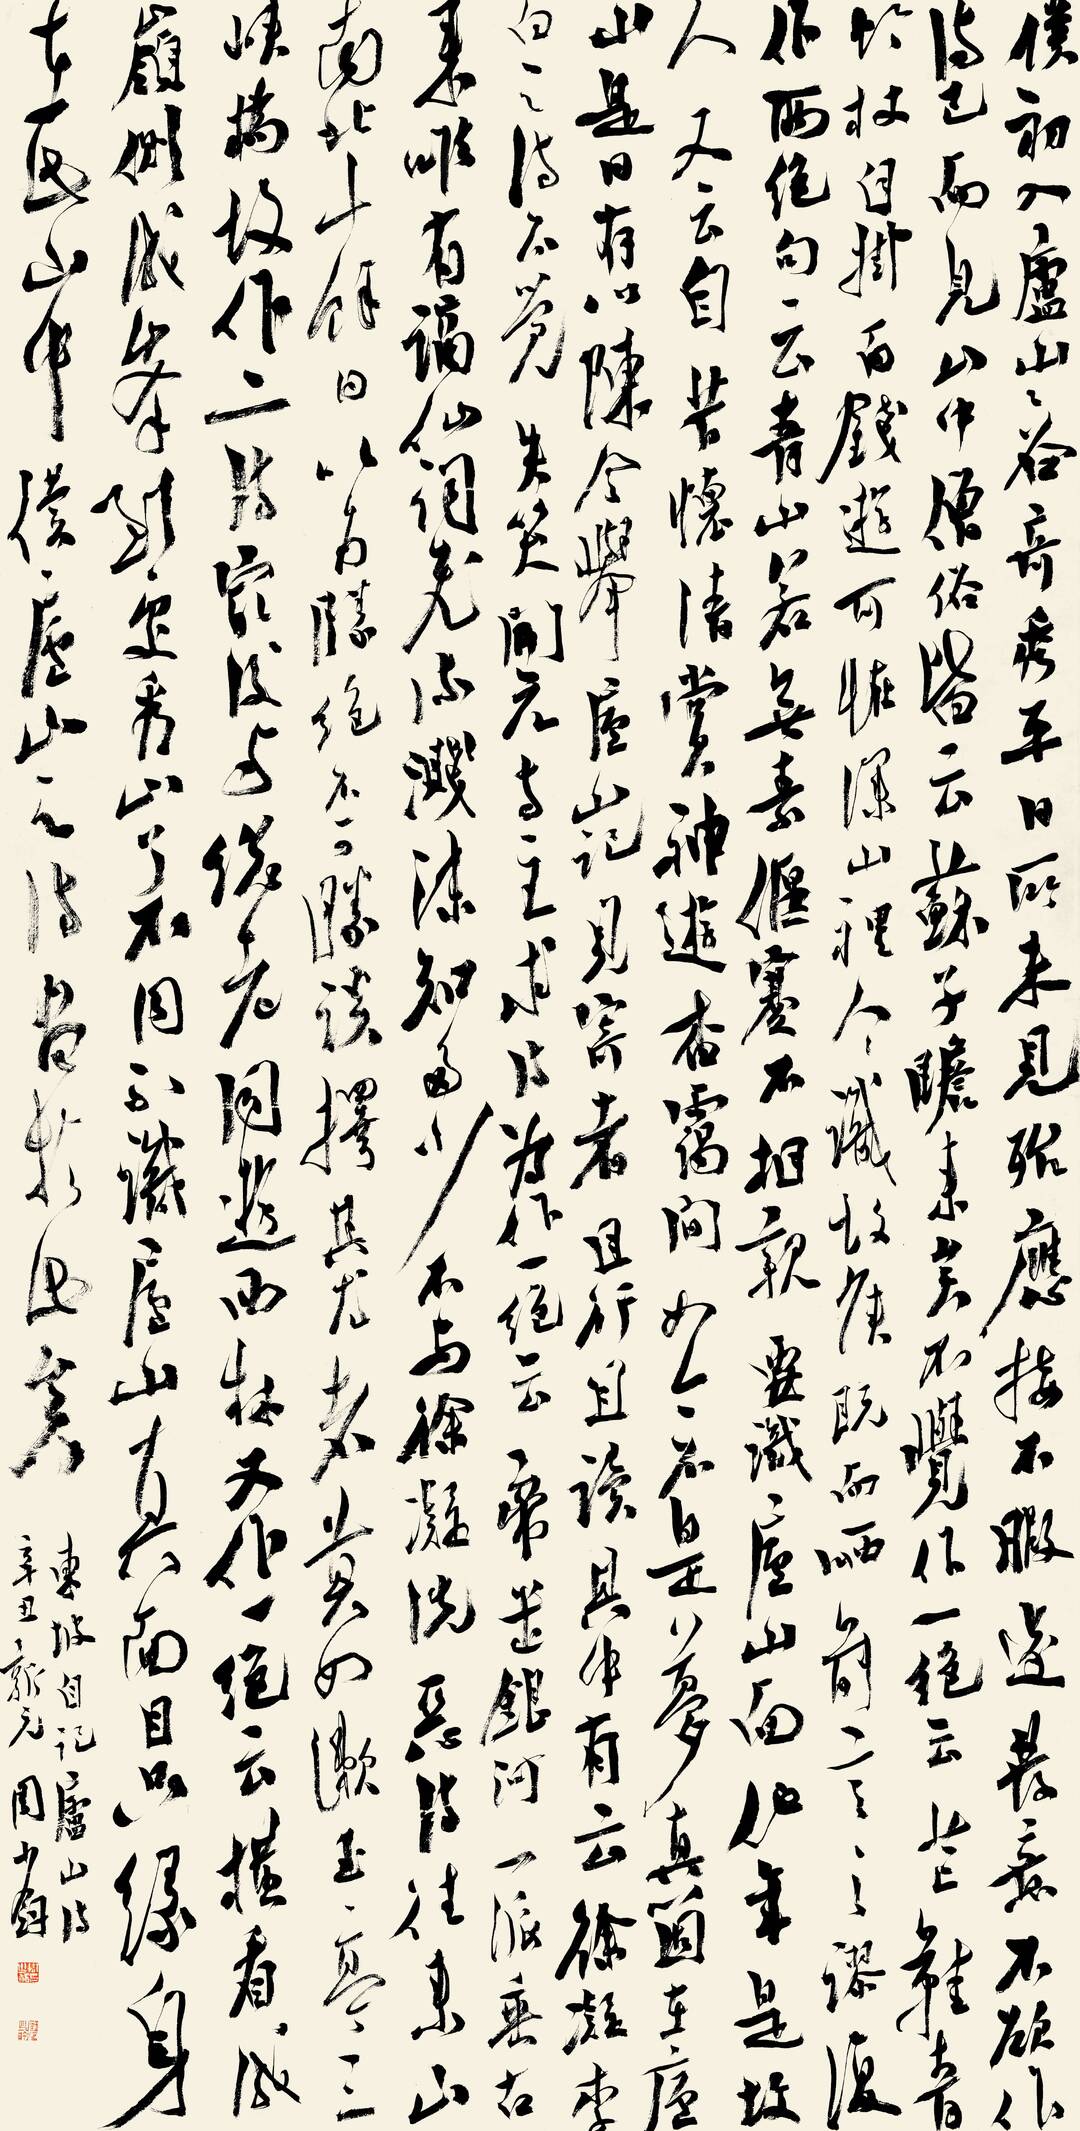 僕初入廬山山谷奇秀平日所未見殆應接不暇遂發意不欲作
詩已而見山中僧俗皆云蘇子瞻來矣不覺作一絕云芒鞵青
竹杖自掛百錢遊可怪深山裡人人識故侯既而哂前言之謬復
作兩絕句云青山若無素偃蹇不相親要識廬山面他年是故
人又云自昔懷清賞神遊杳靄間如今不是夢真箇在廬
山是日有以陳令舉廬山記見寄者且行且讀其中有云徐凝李
白之詩不覺失笑開元寺主求詩為作一絕云帝遣銀河一派垂古
來唯有謫仙詞飛流濺沫知多少不與徐凝洗惡詩往來山
南北十餘日以為勝絕不可勝談擇其尤者莫如漱玉亭三
峽橋故作二詩最後與總老同遊西林又作一絕云橫看成
嶺側成峰到處看山了不同不識廬山真面目只緣身
在此山中僕廬山之詩盡於此矣
東坡自記廬山詩
辛丑新元 周少劍